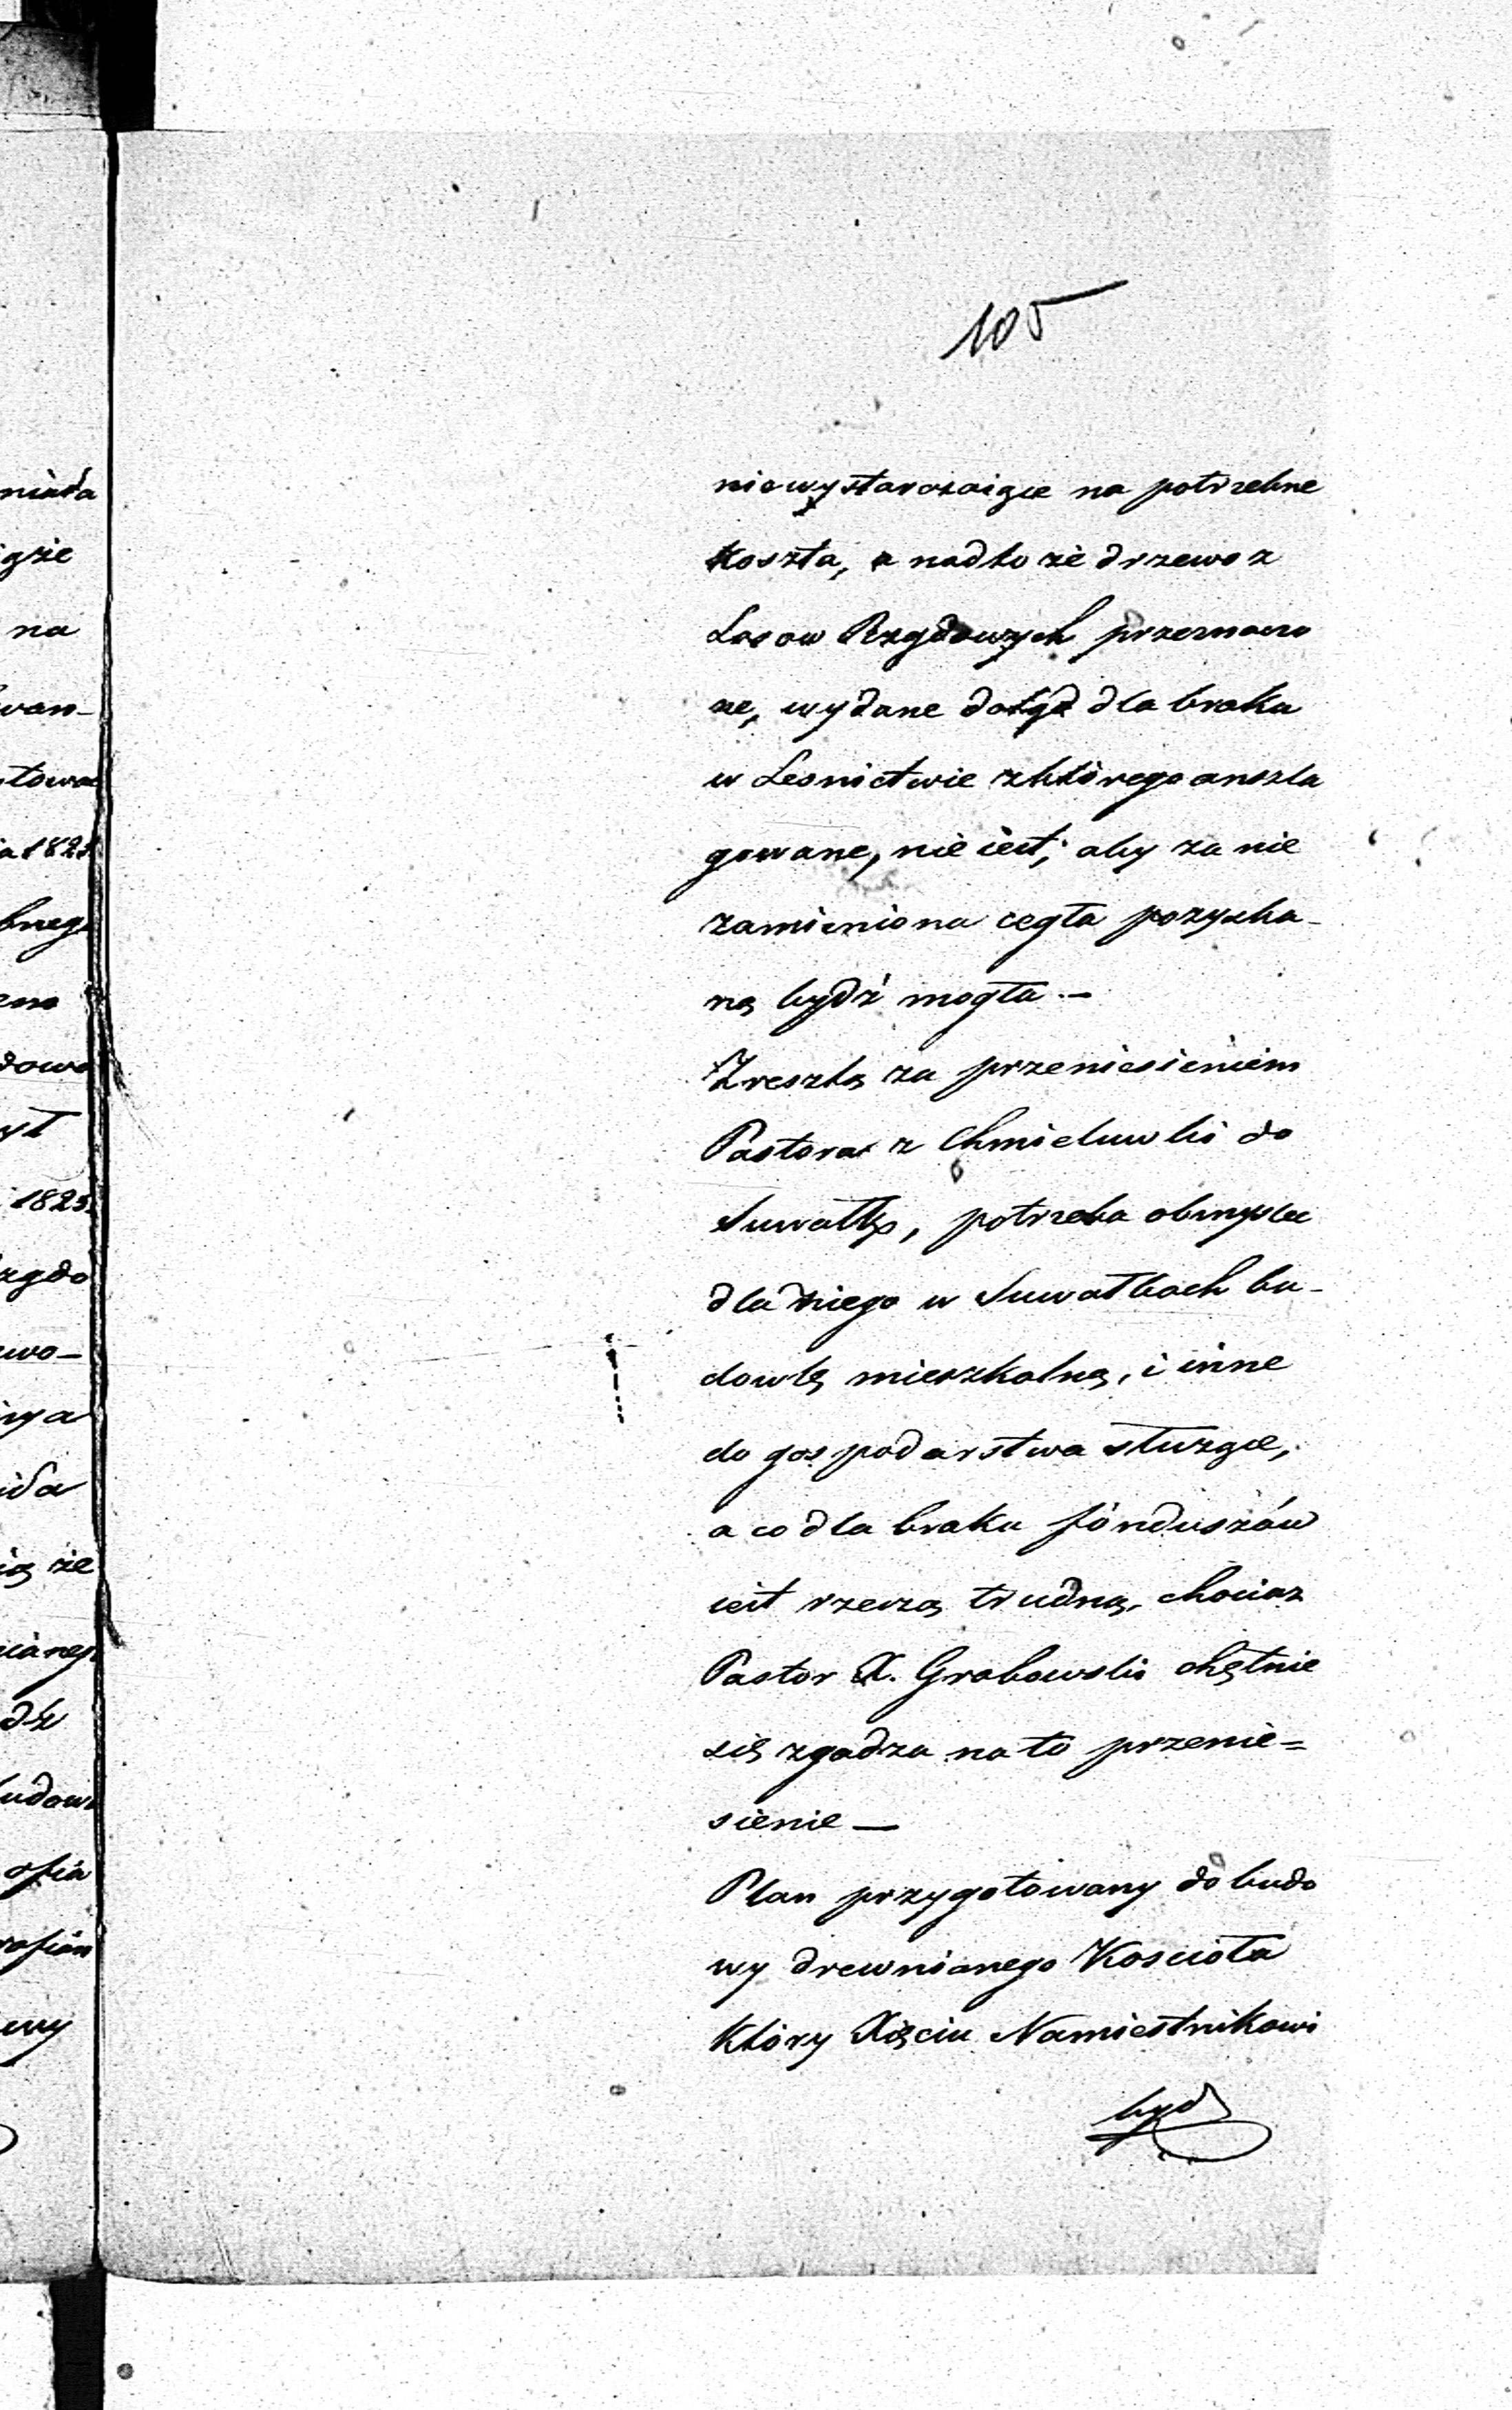 105
niewystarczaiące na potrzebne
Koszta, a nadto że drzewo z
Lasow Rządowych przeznaczo
ne, wydane dotąd dla braku
w Lesnictwie z którego anszla
gowane, nie iest; aby za nie
zamieniona cegła pozyska-
ną bydź mogła.—
Zresztą za przeniesieniem
Pastora z Chmieluwki do
Suwałk, potrzeba obmyslec
dla niego w Suwałkach bu-
dowlą mieszkalną, i inne
do gospodarstwa służące,
a co dla braku funduszów
iest rzeczą trudną, chociaz
Pastor X. Grabowski chętnie
się zgadza na to przenie=
sienie—
Plan przygotowany do budo
wy drewnianego Kościoła
Który Xięciu Namiestnikowi
byd
niała
na
wan-
a 1823
1823.
rządo
wo-
że
wy